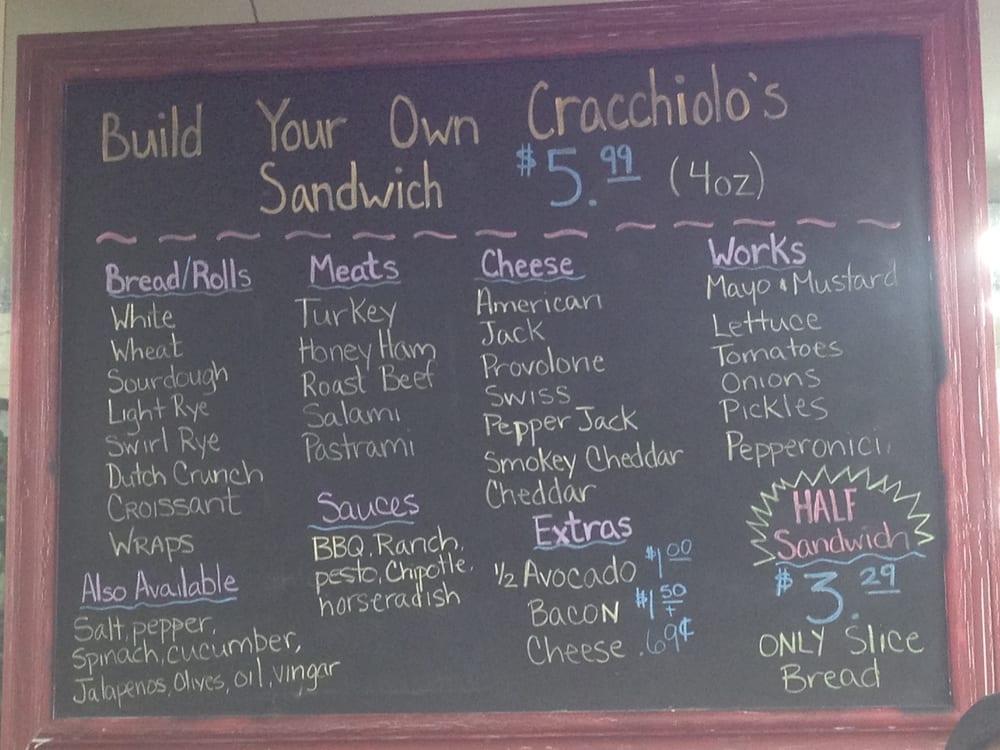 Build Your Own Cracchiolo's
Sandwich $5.99 (4oz)
Bread/Rolls
White
Wheat
Sourdough
Light Rye
Swirl Rye
Dutch Crunch
Croissant
Wraps
Also Available
Salt, pepper,
Spinach, cucumber,
Jalapenos, Olives, oil, vingar
Meats
Turkey
Honey Ham
Roast Beef
Salami
Pastrami
Sauces
BBQ, Ranch,
pesto, Chipotle,
horseradish
Cheese
American
Jack
Provolone
Swiss
Pepper Jack
Smokey Cheddar
Cheddar
Extras
1/2 Avocado $1.00
Bacon $1.50
Cheese .69¢
Works
Mayo & Mustard
Lettuce
Tomatoes
Onions
Pickles
Pepperonici
HALF
Sandwich
$3.29
ONLY Slice
Bread